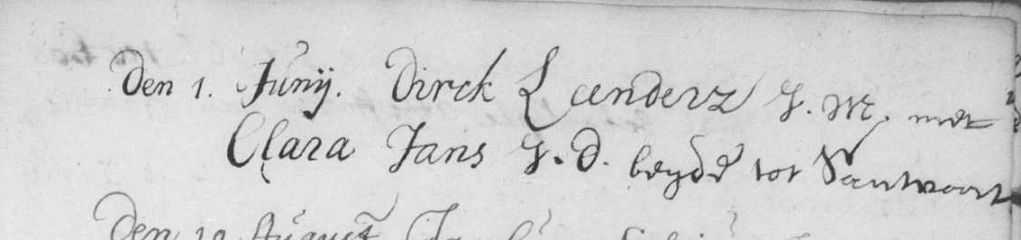 Den 1. Junij. Dirck Leenderz J. M. met
Clara Jans J. D. beyde tot Santvoort
Den 10 August